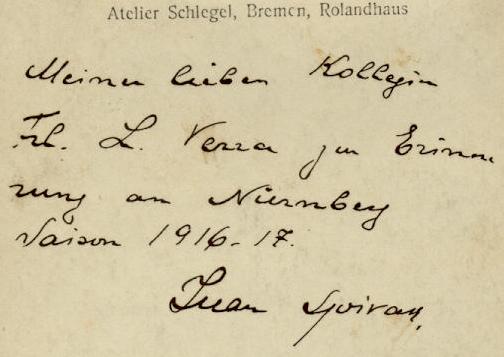 Atelier Schlegel, Bremen, Rolandhaus
Meiner lieben Kollegin
Frl. L. Verra zur Erinne
rung an Nürnberg
Saison 1916-17.
Juan Spivak